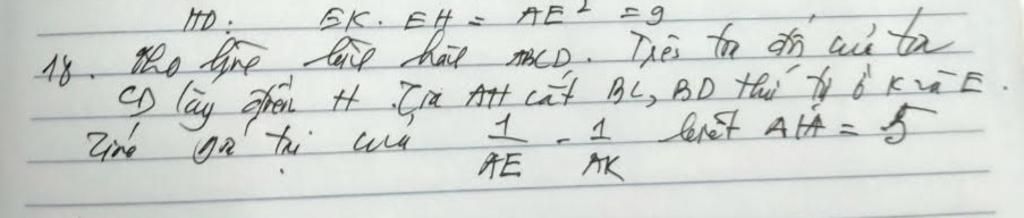 HD: EK. EH = AE² = 9
18. Cho hình bình hành ABCD. Trên tia đối của tia
CD lấy điểm H. Tia AH cắt BC, BD thứ tự ở K và E.
Tính giá trị của 1/AE - 1/AK biết AH = 5